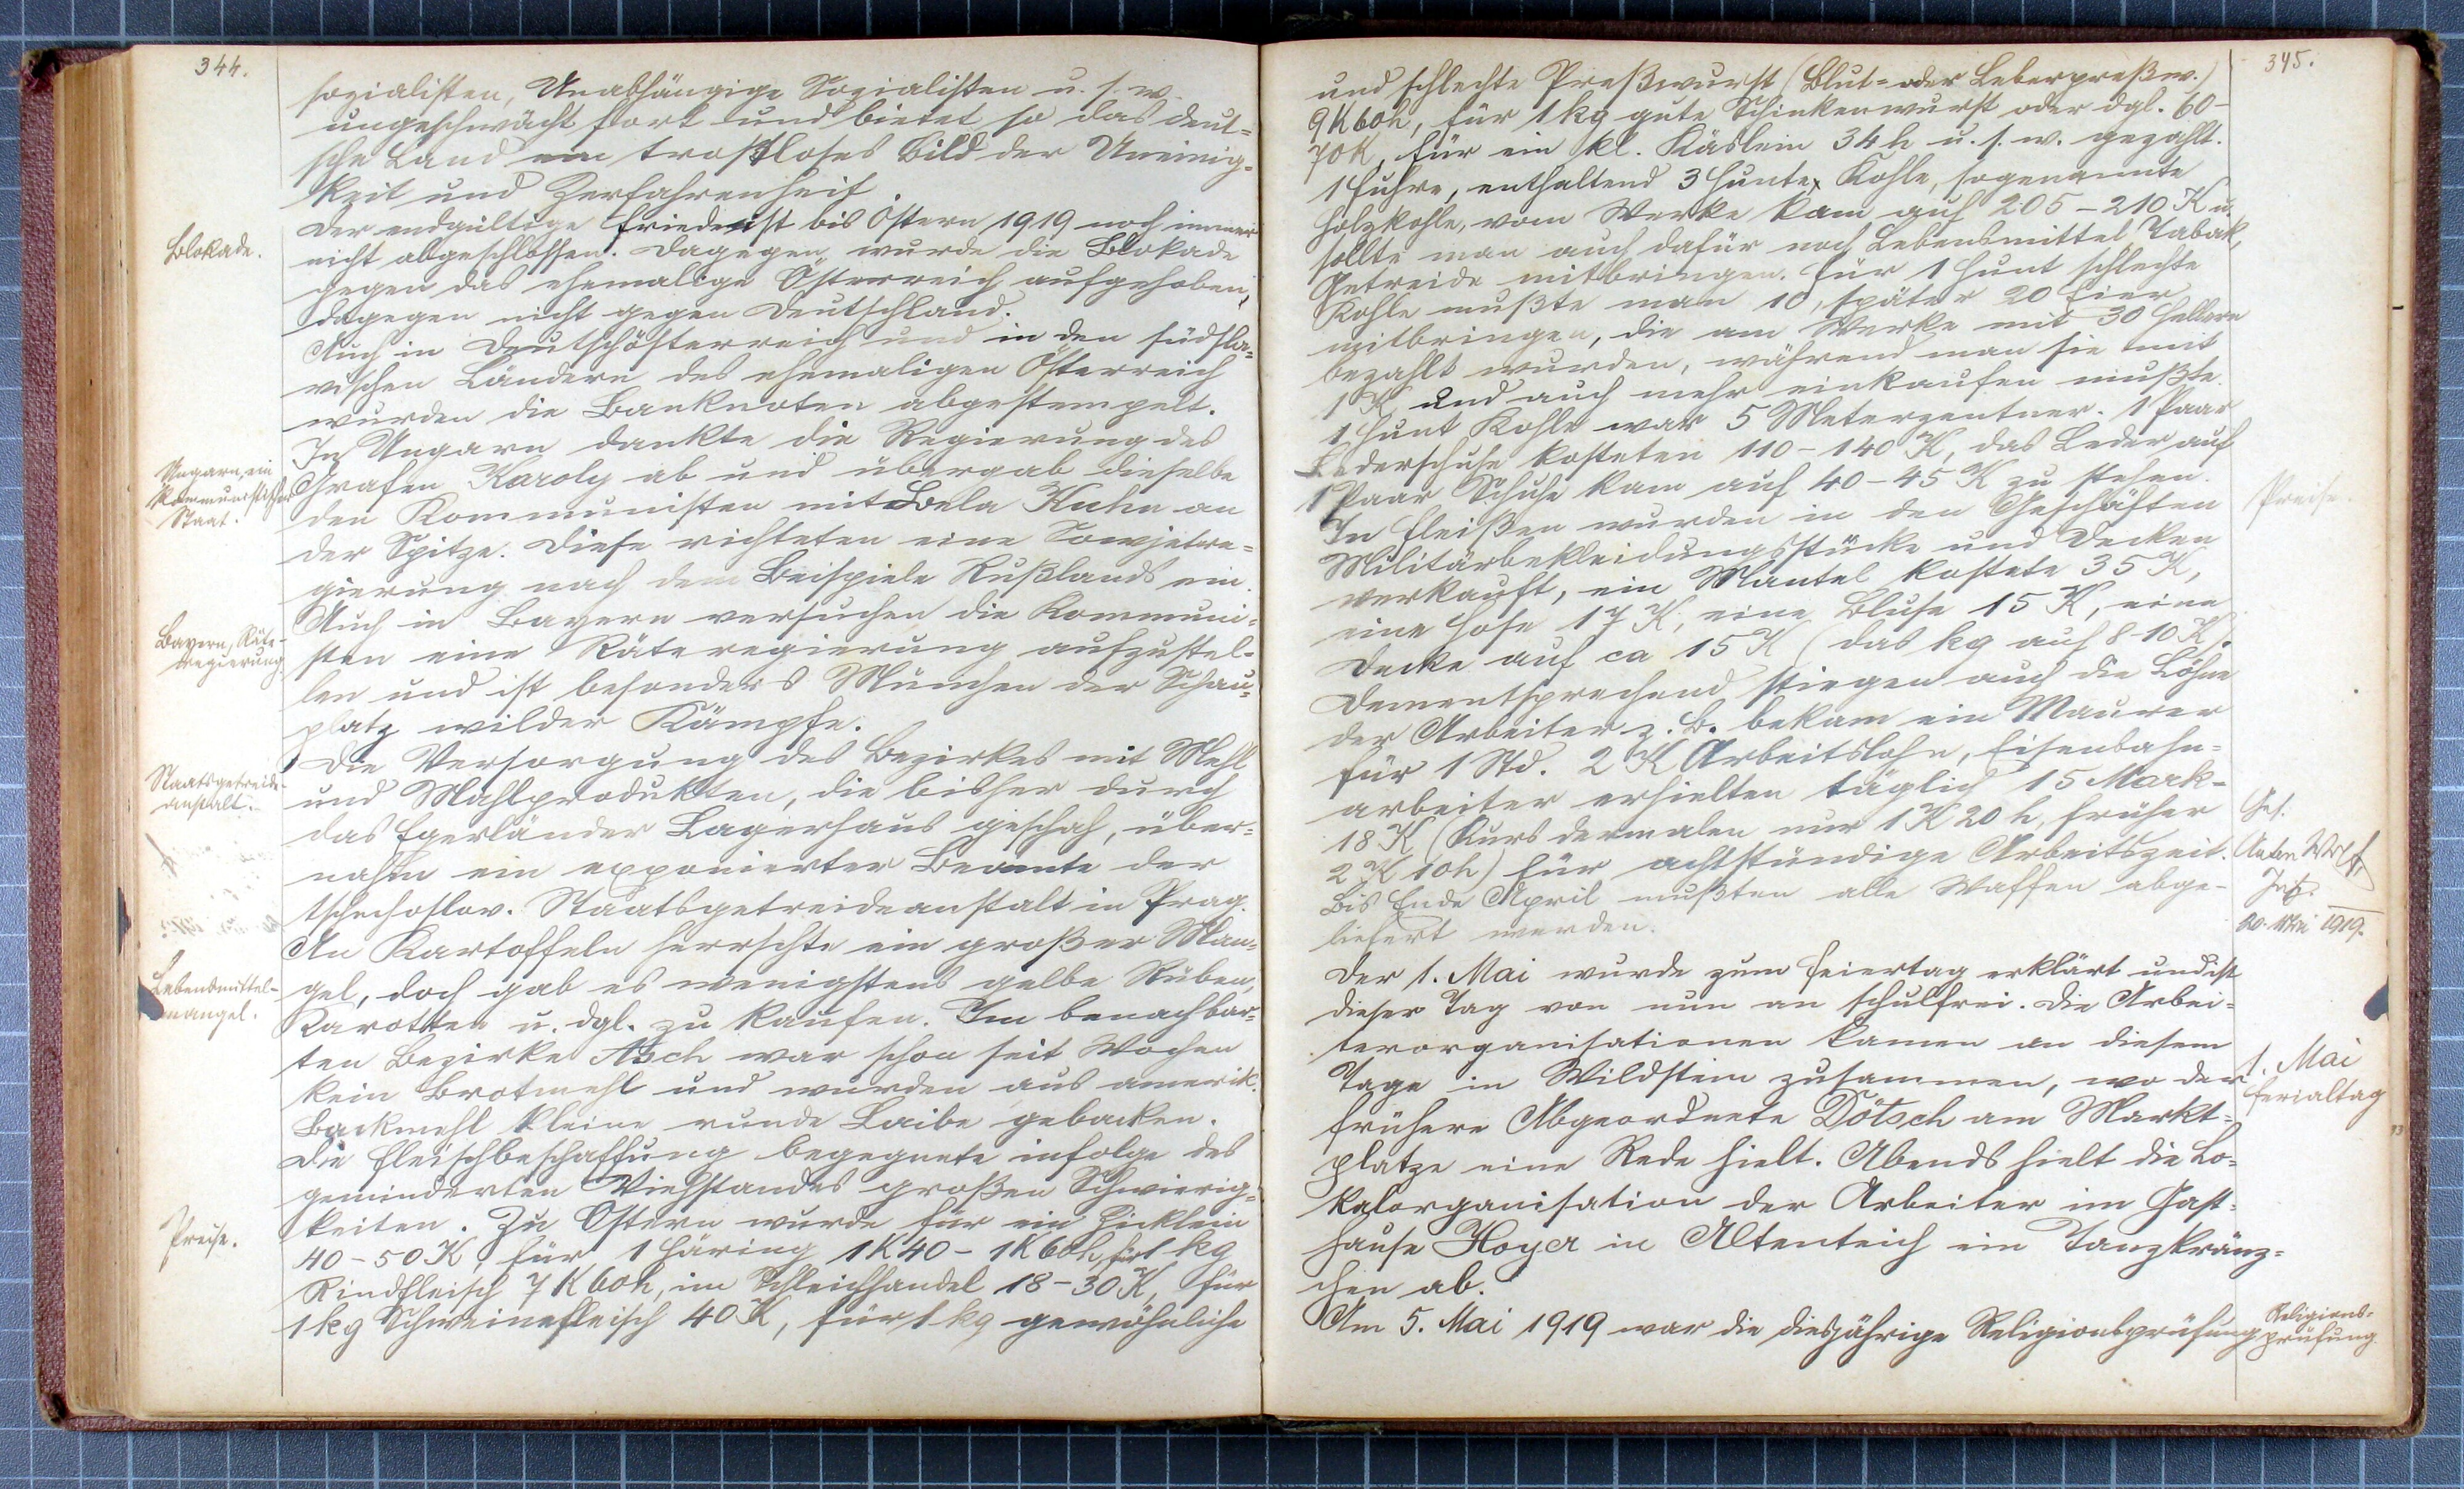 344.
sozialisten, Unabhängige Sozialisten u. s. w.
ungeschwächt fort und bietet so das deut=
sche Land ein trostloses Bild der Uneinig=
keit und Zerfahrenheit.
Blokade.
Der endgültige Friede ist bis Ostern 1919 noch immer
nicht abgeschlossen. Dagegen wurde die Blokade
gegen das ehemalige Österreich aufgehoben,
dagegen nicht gegen Deutschland.
Auch in Deutschösterreich und in den südsla=
vischen Ländern des ehemaligen Österreich
wurden die Banknoten abgestempelt.
Ungarn, ein
kommunistischer
Staat.
In Ungarn dankte die Regierung des
Grafen Karoly ab und übergab dieselbe
den Kommunisten mit Bela Kuhn an
der Spitze. Diese richteten eine Sowjetre=
gierung nach dem Beispiele Rußlands ein.
Bayern, Räte-
regierung
Auch in Bayern versuchen die Kommuni=
sten eine Räteregierung aufzustel=
len und ist besonders München der Schau=
platz wilder Kämpfe.
Staatsgetreide-
anstalt.
Die Versorgung des Bezirkes mit Mehl
und Mahlprodukten, die bisher durch
das Egerländer Lagerhaus geschah, über=
nahm ein exponierter Beamte der
tschechoslov. Staatsgetreideanstalt in Prag.
Lebensmittel-
mangel.
An Kartoffeln herrschte ein großer Man=
gel, doch gab es wenigstens gelbe Rüben,
Karotten u. dgl. zu kaufen. Im benachbar=
ten Bezirke Asch war schon seit Wochen
kein Brotmehl und wurden aus amerik.
Backmehl kleine runde Laibe gebacken.
Die Fleischbeschaffung begegnete infolge des
geminderten Viehstandes großen Schwierig=
Preise.
keiten. Zu Ostern wurde für ein Zicklein
40-50 K, für 1 Häring 1K40 - 1K60h, für 1 kg
Rindfleisch 7 K 60h, im Schleichhandel 18-30 K, für
1 kg Schweinefleisch 40 K, für 1 kg gewöhnliche
345.
und schlechte Preßwurst (Blut= oder Leberpreßw.)
9K60h, für 1 kg gute Schinkenwurst oder dgl. 60-
70K, für ein kl. Käslein 34 h u. s. w. gezahlt.
1 Fuhre, enthaltend 3 Hunte Kohle, sogenannte
Holzkohle, vom Werke kam auf 205-210 K u.
sollte man auch dafür noch Lebensmittel, Tabak,
Getreide mitbringen. Für 1 Hunt schlechte
Kohle mußte man 10, später 20 Eier
mitbringen, die am Werke mit 30 Hellern
bezahlt wurden, während man sie mit
1 K und auch mehr einkaufen mußte.
1 Hunt Kohle war 5 Meterzentner. 1 Paar
Lederschuhe kosteten 110-140 K, das Leder auf
1 Paar Schuhe kam auf 40-45 K zu stehen.
Preise.
In Fleißen wurden in den Geschäften
Militärbekleidungsstücke und Decken
verkauft, ein Mantel kostete 35 K,
eine Hose 17 K, eine Bluse 15 K, eine
Decke auf ca 15 K (das kg auf 8-10 K).
Dementsprechend stiegen auch die Löhne
der Arbeiter z. B. bekam ein Maurer
für 1 Std. 2 K Arbeitslohn, Eisenbahn=
arbeiter erhielten täglich 15 Mark=
18 K (Kurs dermalen nur 1 K 20 h, früher
2 K 10h) für achtstündige Arbeitszeit.
Bis Ende April mußten alle Waffen abge-
liefert werden.
Ges.
Anton Wolf
20. Mai 1919.
Der 1. Mai wurde zum Feiertag erklärt und ist
dieser Tag von nun an schulfrei. Die Arbei=
terorganisationen kamen an diesem
1. Mai
Ferialtag
Tage in Wildstein zusammen, wo der
frühere Abgeordnete Dötsch am Markt=
platze eine Rede hielt. Abends hielt die Lo=
kalorganisation der Arbeiter im Gast=
hause Hoyer in Altenteich ein Tanzkränz=
chen ab.
Am 5. Mai 1919 war die diesjährige Religionsprüfung
Religions=
prüfung.